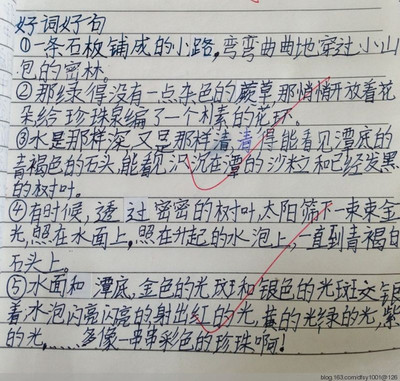 好词好句
①一条石板铺成的小路,弯弯曲曲地穿过小山
包的密林。
②那绿得没有一点杂色的蕨草,那悄悄开放着花
朵给珍珠泉编了一个朴素的花环。
③水是那样深,又是那样清,清得能看见潭底的
青褐色的石头,能看见沉在潭的沙粒和已经发黑
的树叶。
④有时候,透过密密的树叶,太阳筛下一束束金
光,照在水面上,照在升起的水泡上,一直到青褐白
石头上。
⑤水面和潭底,金色的光斑和银色的光斑交错
着水泡闪亮闪亮的射出红的光,黄的光绿的光,紫
的光,……多像一串串彩色的珍珠啊!
blog.163.com/dfsy1001@126